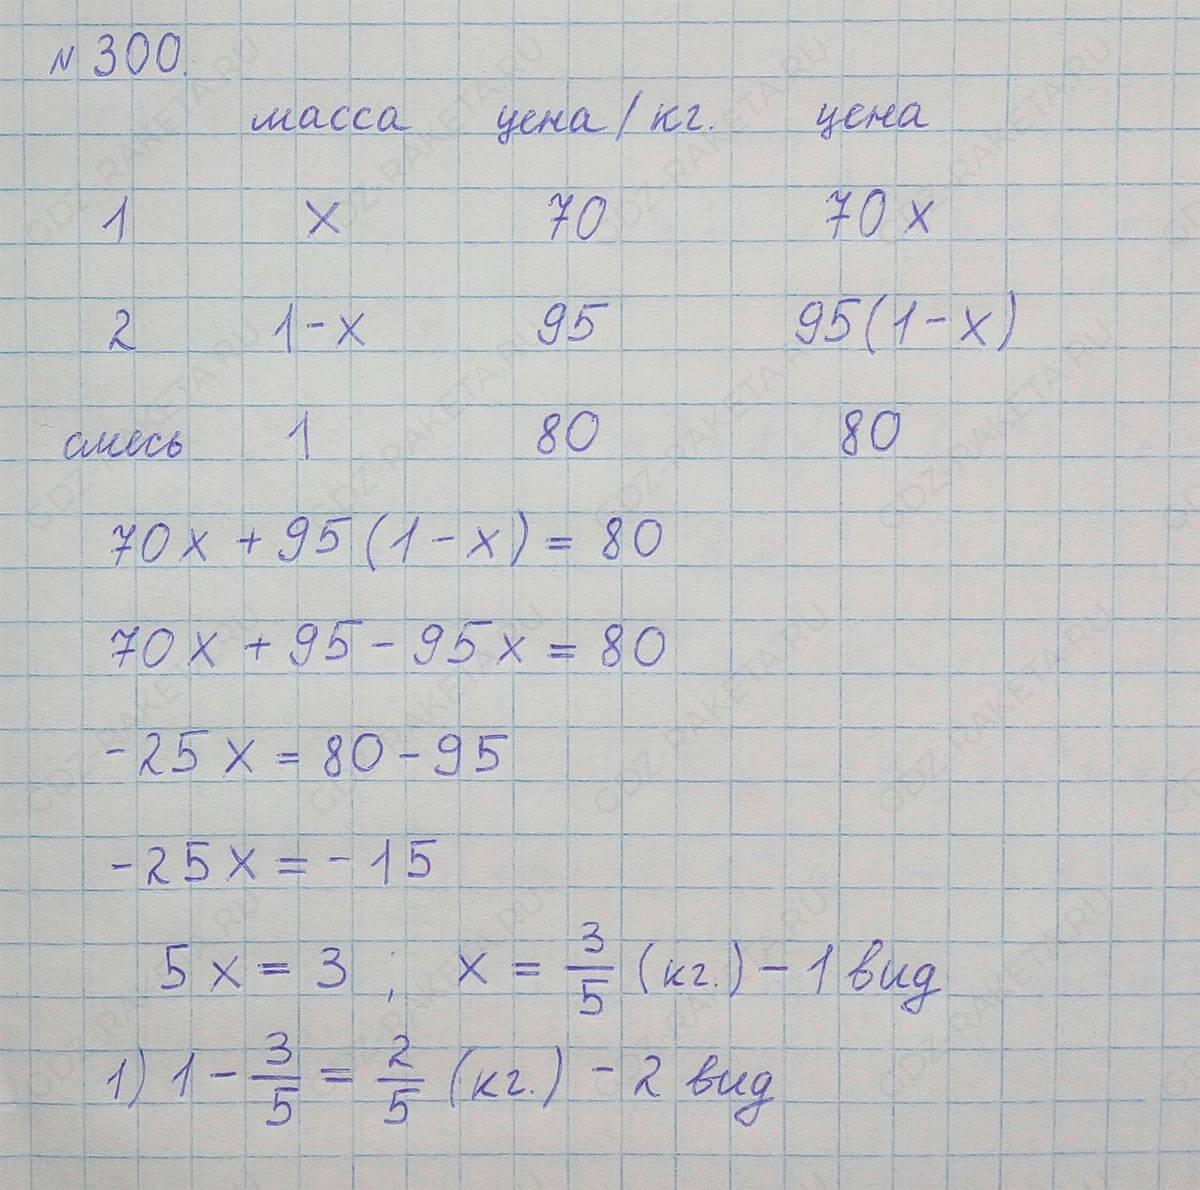 № 300.
масса цена/кг. цена
1 x 70 70x
2 1-x 95 95(1-x)
смесь 1 80 80
70x + 95(1-x) = 80
70x + 95 - 95x = 80
-25x = 80 - 95
-25x = -15
5x = 3 ; x = 3/5 (кг.) - 1 вид
1) 1 - 3/5 = 2/5 (кг.) - 2 вид
GDZ-RAKETA.RU